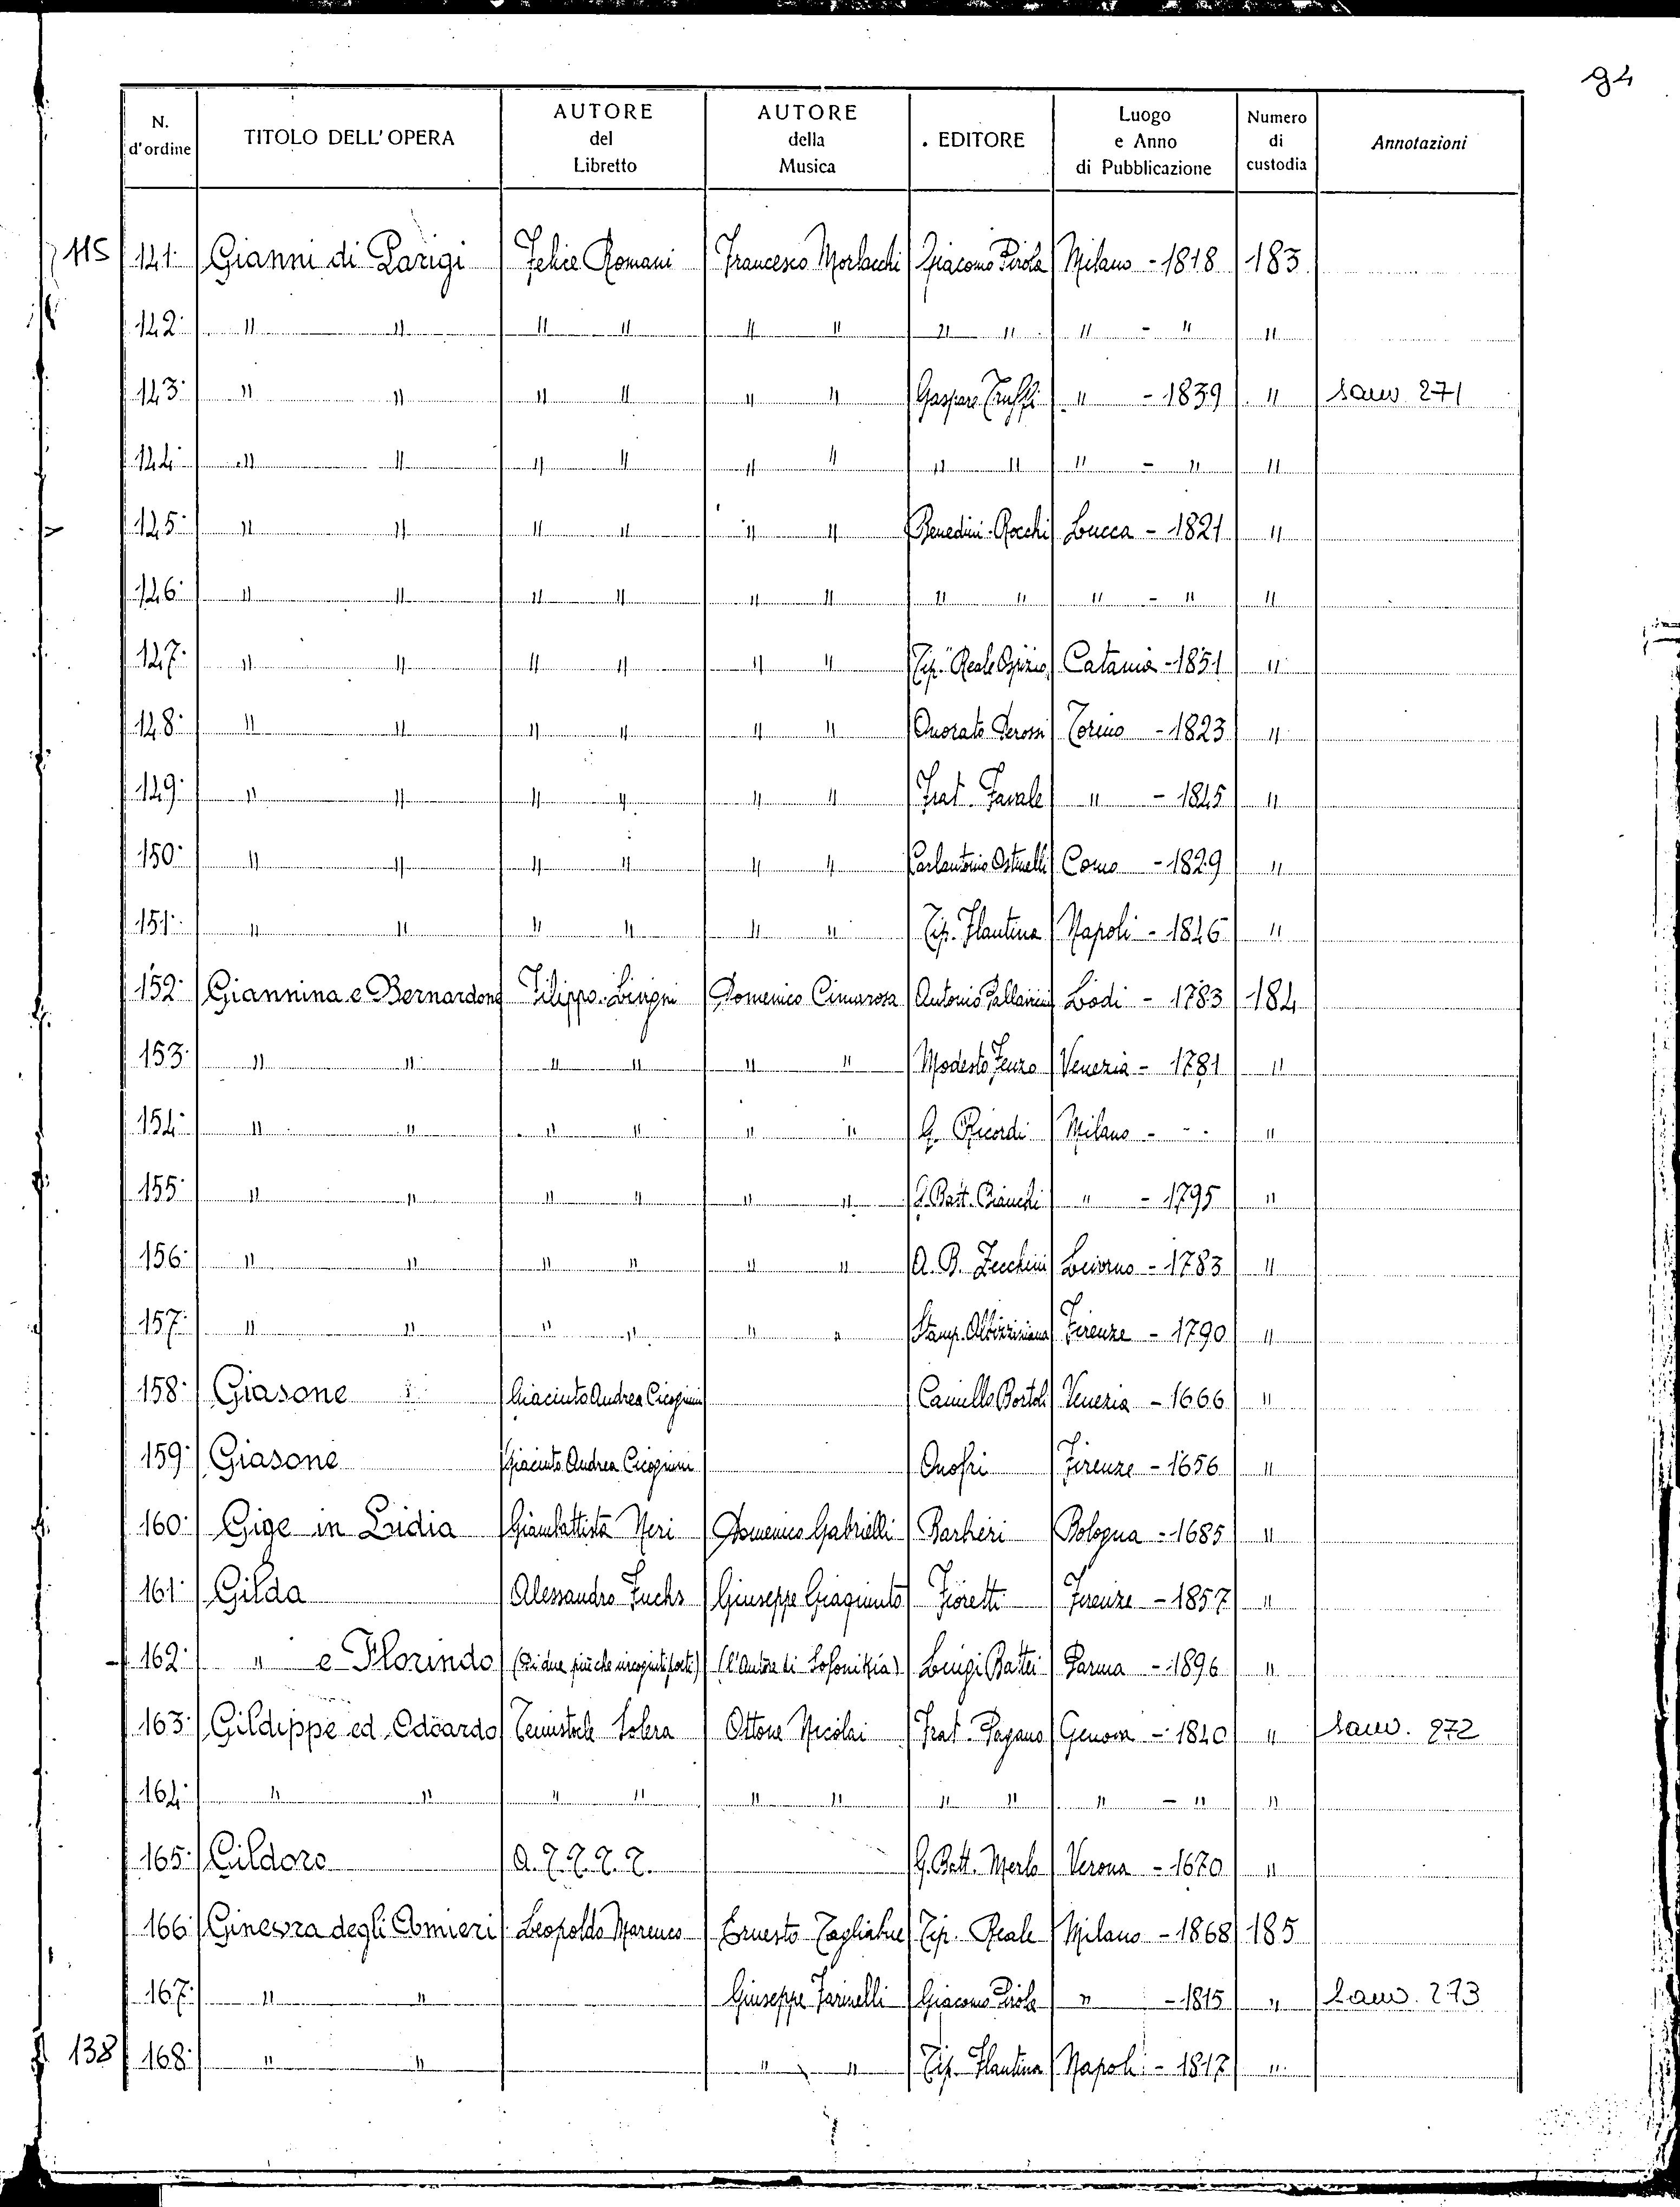 94
N. d'ordine | TITOLO DELL'OPERA | AUTORE del Libretto | AUTORE della Musica | EDITORE | Luogo e Anno di Pubblicazione | Numero di custodia | Annotazioni
115 141 Gianni di Parigi Felice Romani Francesco Morlacchi Giacomo Pirola Milano - 1818 183
142 " " " " " " " " " - " "
143 " " " " " " Gaspare Truffi " - 1839 " Sauv. 271
144 " " " " " " " " " - " "
145 " " " " " " Benedini-Rocchi Lucca - 1821 "
146 " " " " " " " " " - " "
147 " " " " " " Tip. Reale Ospizio Catania - 1851 "
148 " " " " " " Onorato Derossi Torino - 1823 "
149 " " " " " " Frat. Favale " - 1845 "
150 " " " " " " Carlantonio Ostinelli Como - 1829 "
151 " " " " " " Tip. Flautina Napoli - 1846 "
152 Giannina e Bernardone Filippo Livigni Domenico Cimarosa Antonio Pallavicini Lodi - 1783 184
153 " " " " " " Modesto Fenzo Venezia - 1781 "
154 " " " " " " G. Ricordi Milano - - - "
155 " " " " " " G. Batt. Bianchi " - 1795 "
156 " " " " " " A. B. Zecchini Livorno - 1783 "
157 " " " " " " Stamp. Albizziniana Firenze - 1790 "
158 Giasone Giacinto Andrea Cicognini Camillo Bortoli Venezia - 1666 "
159 Giasone Giacinto Andrea Cicognini Onofri Firenze - 1656 "
160 Gige in Lidia Giambattista Neri Domenico Gabrielli Barbieri Bologna - 1685 "
161 Gilda Alessandro Fuchs Giuseppe Giaquinto Fioretti Firenze - 1857 "
162 " e Florindo (Di due più che incogniti poeti) (l'Autore di Sofonisba) Luigi Battei Parma - 1896 "
163 Gildippe ed Odoardo Temistocle Solera Ottone Nicolai Frat. Pagano Genova - 1840 " Sauv. 272
164 " " " " " " " " " - " "
165 Gildoro A. Z. Z. Z. Z. G. Batt. Merlo Verona - 1670 "
166 Ginevra degli Almieri Leopoldo Marenco Ernesto Tagliabue Tip. Reale Milano - 1868 185
167 " " Giuseppe Farinelli Giacomo Pirola " - 1815 " Sauv. 273
138 168 " " " " Tip. Flautina Napoli - 1817 "